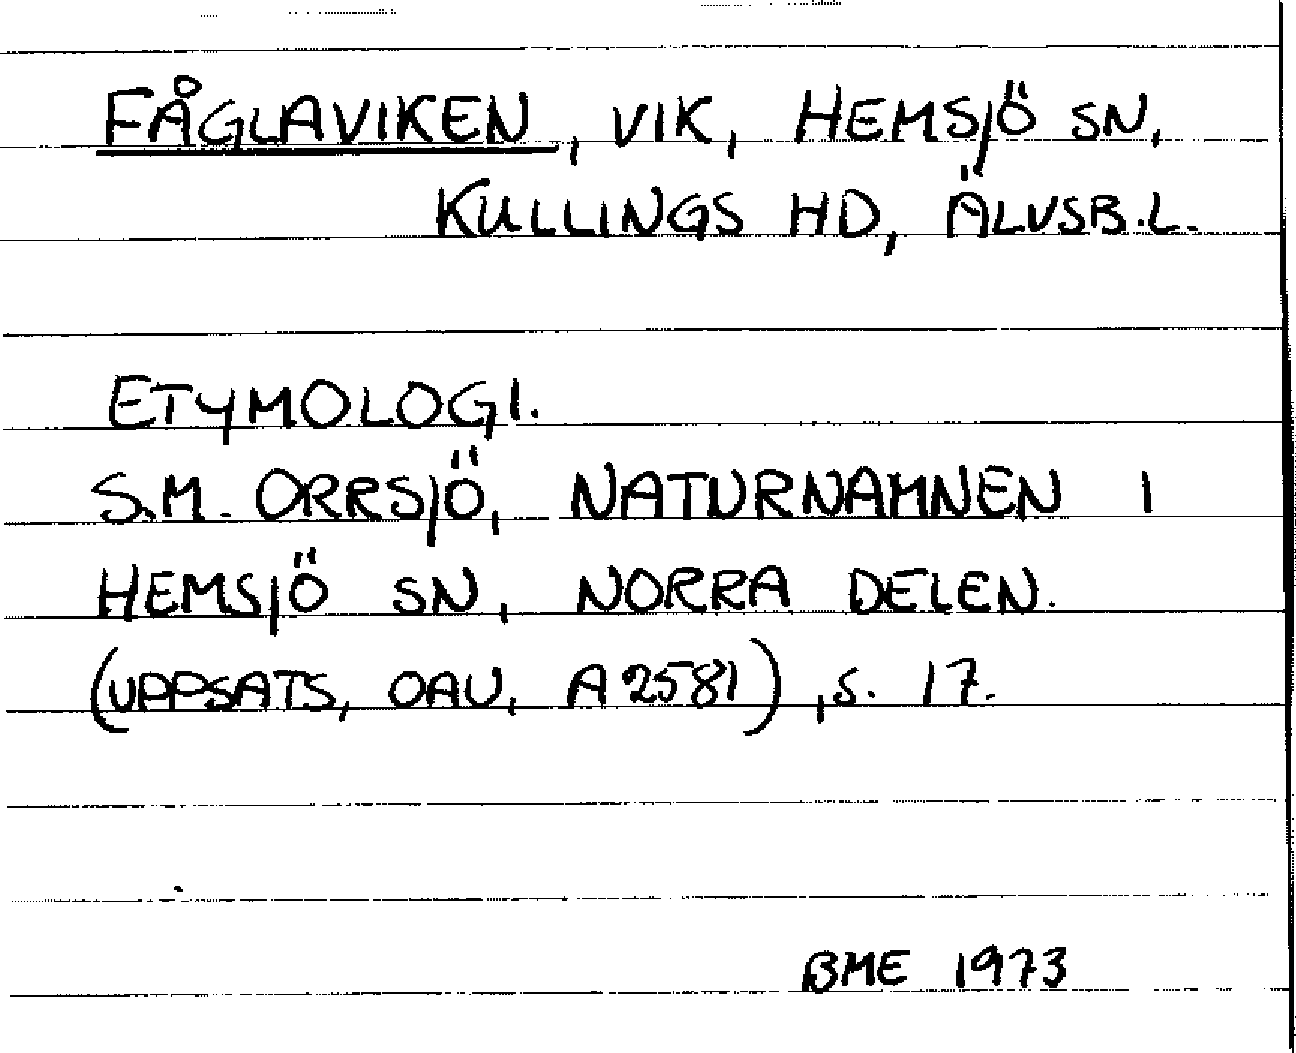 FÅGLAVIKEN, VIK, HEMSJÖ SN,
KULLINGS HD, ÄLVSB.L.
ETYMOLOGI.
S.M. ORRSJÖ, NATURNAMNEN I
HEMSJÖ SN, NORRA DELEN.
(UPPSATS, OAU, A 2581), S. 17.
BME 1973